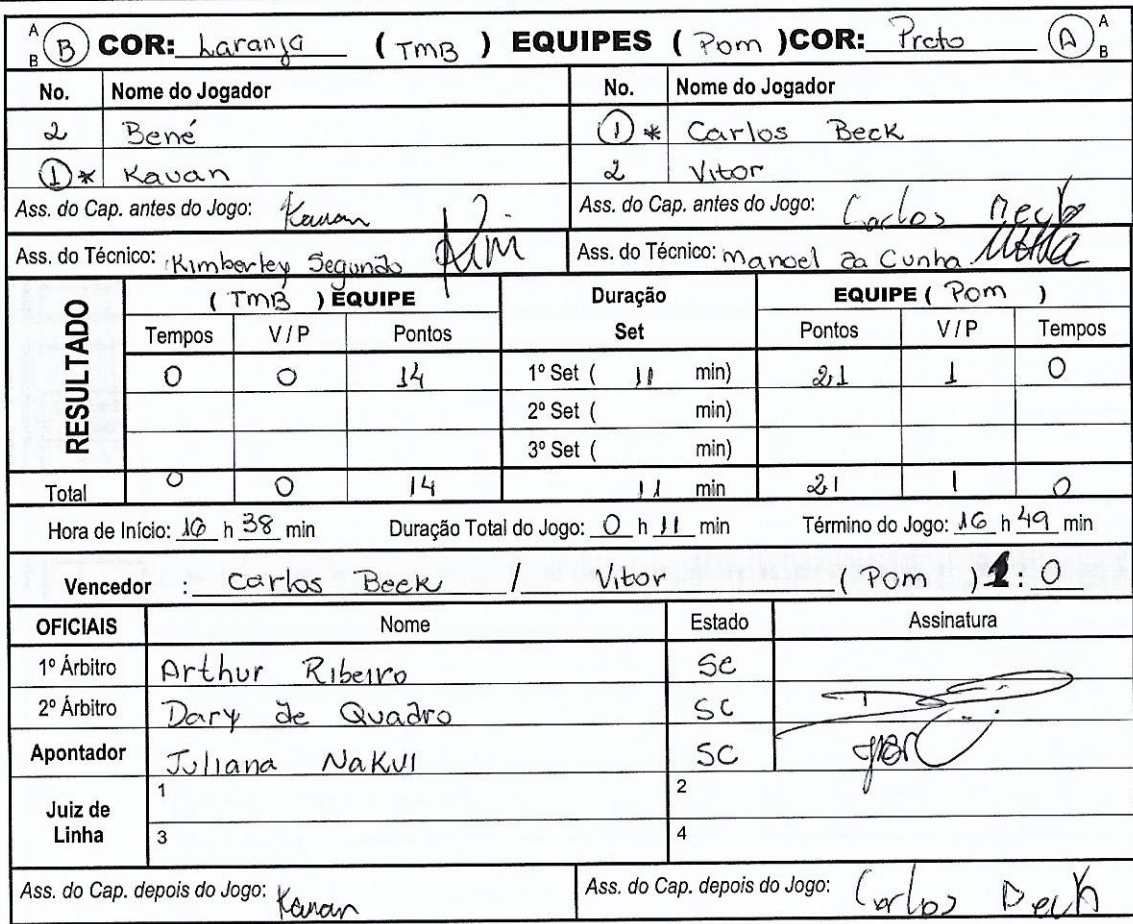 A B (B) COR: Laranja ( TMB ) EQUIPES ( Pom )COR: Preto (A) A B
No. Nome do Jogador No. Nome do Jogador
2 Bené (1)* Carlos Beck
(1)* Kauan 2 Vitor
Ass. do Cap. antes do Jogo: Kauan Ass. do Cap. antes do Jogo: Carlos Beck
Ass. do Técnico: Kimberley Segundo Kim Ass. do Técnico: Manoel da Cunha
RESULTADO
( TMB ) EQUIPE Duração EQUIPE ( Pom )
Tempos V / P Pontos Set Pontos V / P Tempos
0 0 14 1º Set ( 11 min) 21 1 0
2º Set ( min)
3º Set ( min)
Total 0 0 14 11 min 21 1 0
Hora de Início: 16 h 38 min Duração Total do Jogo: 0 h 11 min Término do Jogo: 16 h 49 min
Vencedor : Carlos Beck / Vitor ( Pom ) 1 : 0
OFICIAIS Nome Estado Assinatura
1º Árbitro Arthur Ribeiro SC
2º Árbitro Dary de Quadro SC
Apontador Juliana Nakui SC
Juiz de Linha 1 2
3 4
Ass. do Cap. depois do Jogo: Kauan Ass. do Cap. depois do Jogo: Carlos Beck